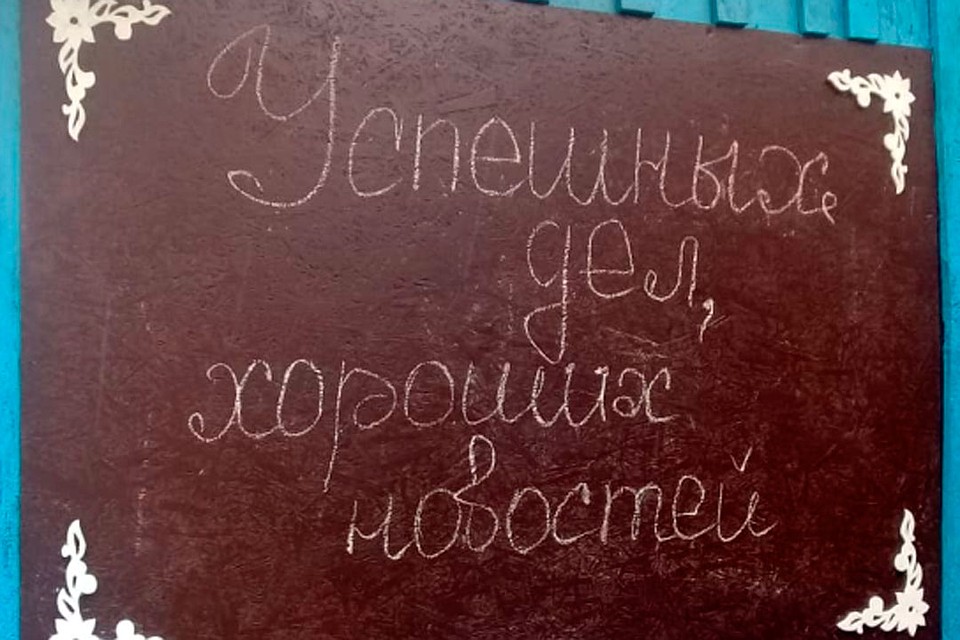 Успешных
дел,
хороших
новостей